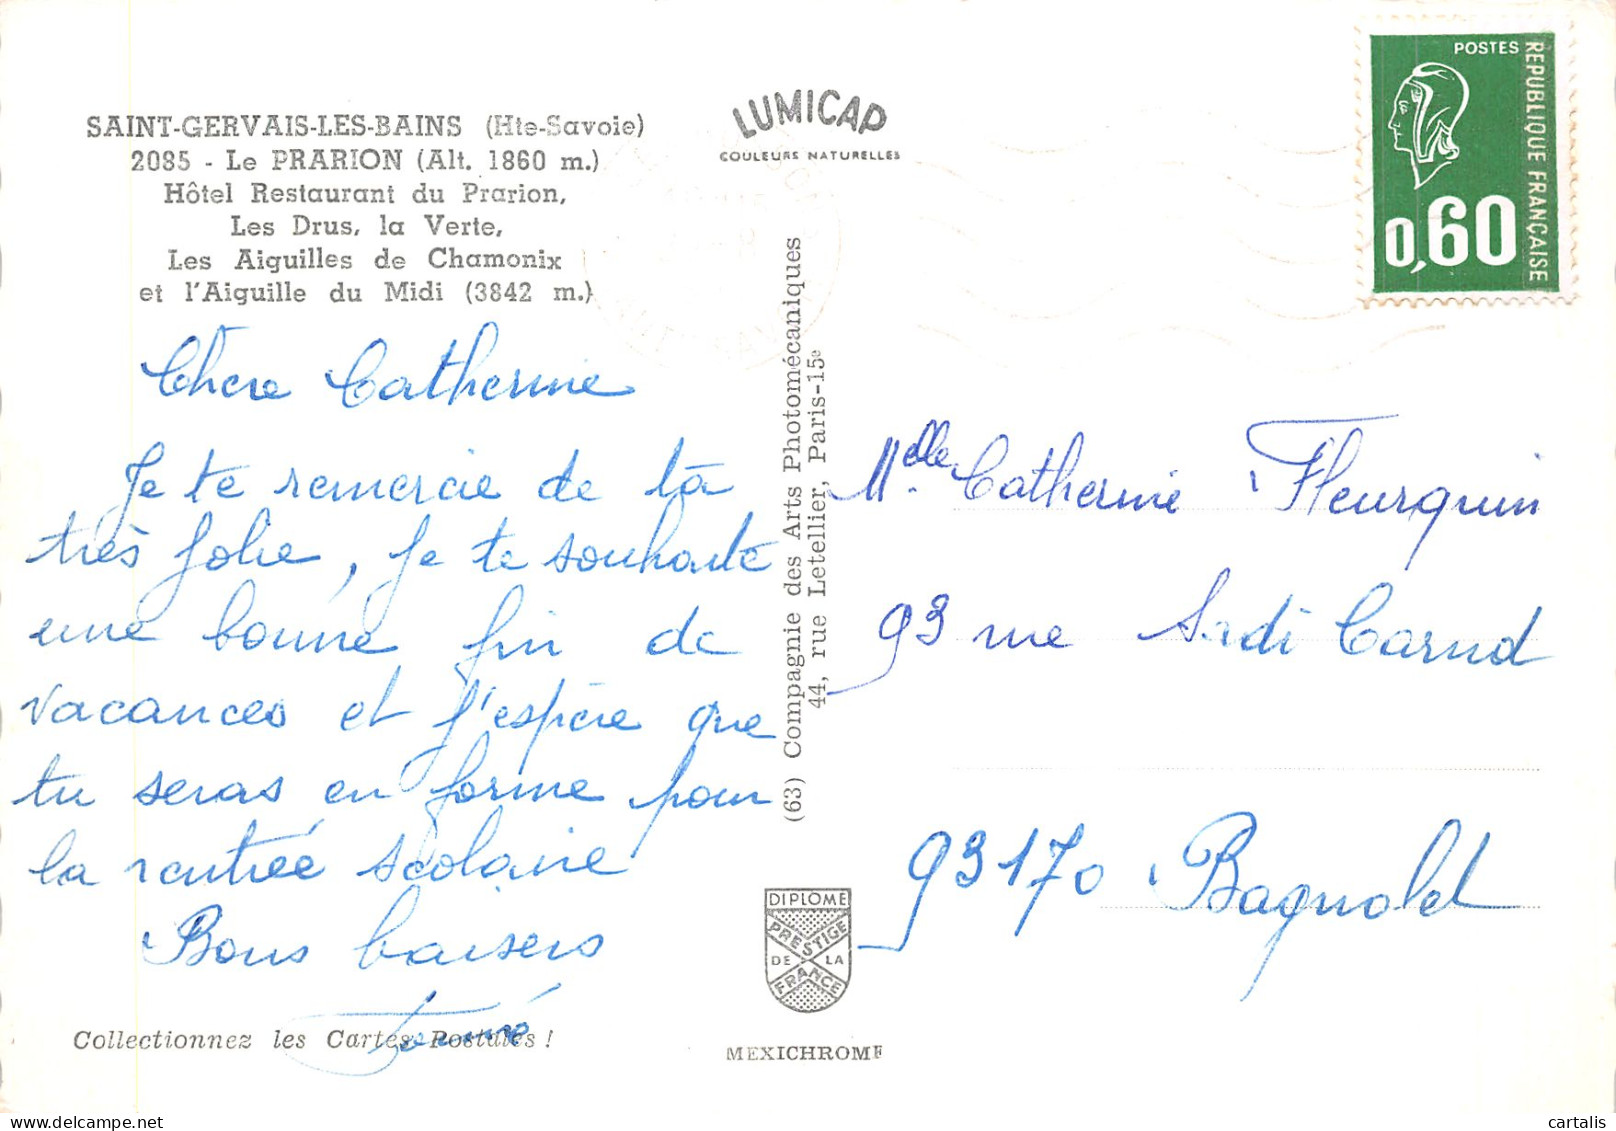 SAINT-GERVAIS-LES-BAINS (Hte-Savoie)
2085 - Le PRARION (Alt. 1860 m.)
Hôtel Restaurant du Prarion,
Les Drus, la Verte,
Les Aiguilles de Chamonix
et l'Aiguille du Midi (3842 m.)
LUMICAP
COULEURS NATURELLES
POSTES
REPUBLIQUE FRANÇAISE
0,60
Chère Catherine
Je te remercie de ta
très jolie, je te souhaite
une bonne fin de
vacances et j'espère que
tu seras en forme pour
la rentrée scolaire
Bons baisers
Collectionnez les Cartes Postales !
(63) Compagnie des Arts Photomécaniques
44, rue Letellier, Paris-15e
Melle Catherine Fleurquin
93 rue Sadi Carnot
93170 Bagnolet
DIPLOME
PRESTIGE
DE LA
FRANCE
MEXICHROME
cartalis
www.delcampe.net